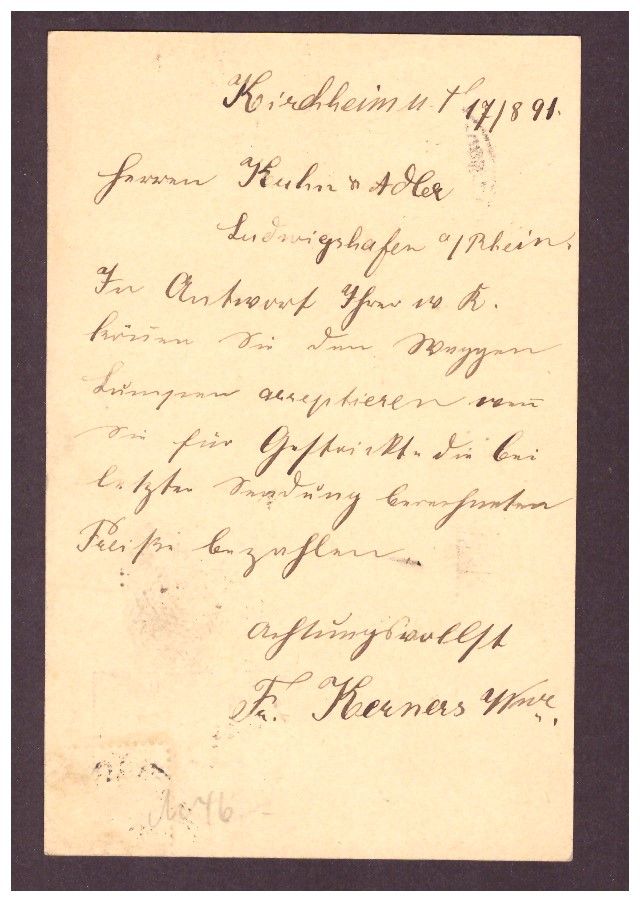 Kirchheim u. T 17/8 91.
Herren Kuhn & Adler
Ludwigshafen a/Rhein.
In Antwort Ihrer w K.
können Sie den Waggon
Lumpen acceptieren wenn
Sie für Gestrickte die bei
letzter Sendung berechneten
Preiße bezahlen.
Achtungsvollst
Fr. Kerners Wwe.
No 46